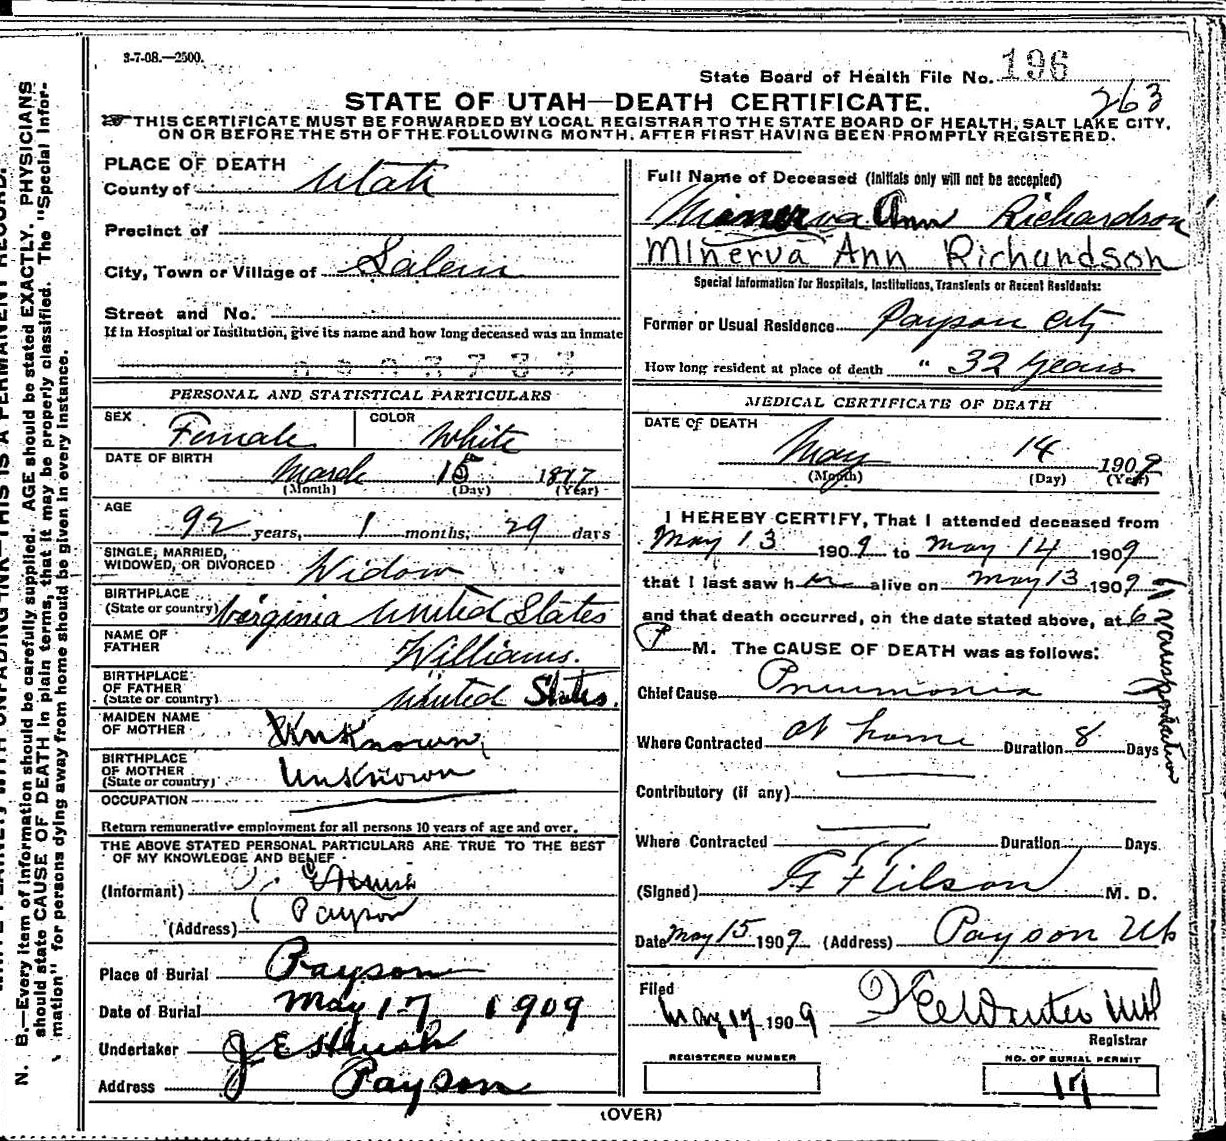 3-7-08.—2500.
State Board of Health File No. 196
263
STATE OF UTAH—DEATH CERTIFICATE.
THIS CERTIFICATE MUST BE FORWARDED BY LOCAL REGISTRAR TO THE STATE BOARD OF HEALTH, SALT LAKE CITY,
ON OR BEFORE THE 5TH OF THE FOLLOWING MONTH, AFTER FIRST HAVING BEEN PROMPTLY REGISTERED.
PLACE OF DEATH
County of Utah
Precinct of
City, Town or Village of Salem
Street and No.
If in Hospital or Institution, give its name and how long deceased was an inmate
PERSONAL AND STATISTICAL PARTICULARS
SEX Female COLOR White
DATE OF BIRTH
March 15 1817
(Month) (Day) (Year)
AGE
92 years, 1 months, 29 days
SINGLE, MARRIED,
WIDOWED, OR DIVORCED Widow
BIRTHPLACE
(State or country) Virginia United States
NAME OF
FATHER Williams.
BIRTHPLACE
OF FATHER
(State or country) United States.
MAIDEN NAME
OF MOTHER Unknown
BIRTHPLACE
OF MOTHER
(State or country) Unknown
OCCUPATION
Return remunerative employment for all persons 10 years of age and over.
THE ABOVE STATED PERSONAL PARTICULARS ARE TRUE TO THE BEST
OF MY KNOWLEDGE AND BELIEF
(Informant)
(Address) Payson
Place of Burial Payson
Date of Burial May 17 1909
Undertaker J E
Address Payson
Full Name of Deceased (Initials only will not be accepted)
Minerva Ann Richardson
Minerva Ann Richardson
Special Information for Hospitals, Institutions, Transients or Recent Residents:
Former or Usual Residence Payson City
How long resident at place of death " 32 years
MEDICAL CERTIFICATE OF DEATH
DATE OF DEATH
May 14 1909
(Month) (Day) (Year)
I HEREBY CERTIFY, That I attended deceased from
May 13 1909 to May 14 1909
that I last saw her alive on May 13 1909
and that death occurred, on the date stated above, at 6
P M. The CAUSE OF DEATH was as follows:
Chief Cause Pneumonia
Where Contracted at home Duration 8 Days
Contributory (if any)
Where Contracted Duration Days.
(Signed) M. D.
Date May 15 1909 (Address) Payson Ut
Filed
May 17 1909
Registrar
REGISTERED NUMBER
NO. OF BURIAL PERMIT
17
(OVER)
N. B.—Every item of information should be carefully supplied. AGE should be stated EXACTLY. PHYSICIANS
should state CAUSE OF DEATH in plain terms, that it may be properly classified. The "Special Infor-
mation" for persons dying away from home should be given in every instance.